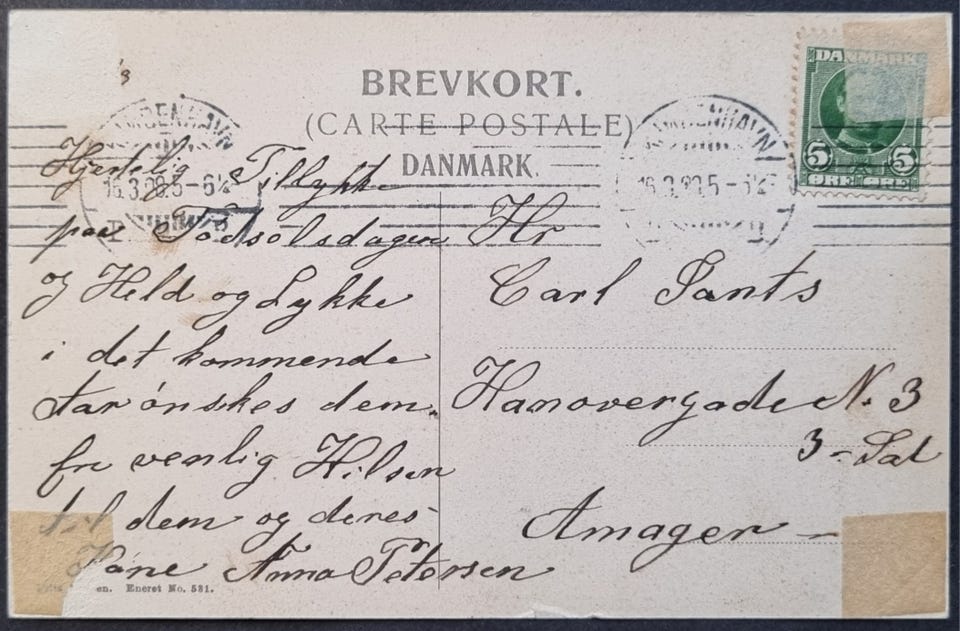 BREVKORT.
(CARTE POSTALE)
DANMARK.
DANMARK
5 5
ØRE ØRE
KJØBENHAVN
KJØBENHAVN
Hjertelig Tillykke
paa Födsolsdagen
og Held og Lykke
i det kommende
aar önskes dem.
fra venlig Hilsen
til dem og deres
Kone Anna Petersen
Hr
Carl Jants
Hanovergade N. 3
3 - Sal
Amager -
en. Eneret No. 531.